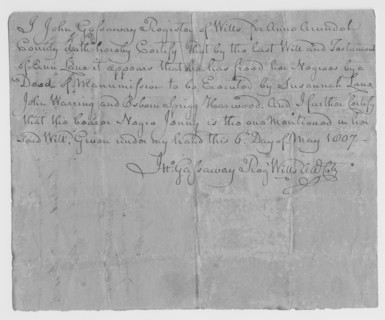 I John Gassaway Register of Wills for Anne Arundel
County doth hereby Certify that by the Last Will and Testament
of Ann Lane it appears that she has freed her Negroes by a
Deed of Manumission to be Executed by Susannah Lane
John Warring and Osborn Sprigg Harwood. And I further Certify
that the bearer Negro Jenny is the one Mentioned in her
said Will. Given under my hand this 6 Day of May 1807
Jno Gassaway Reg Wills